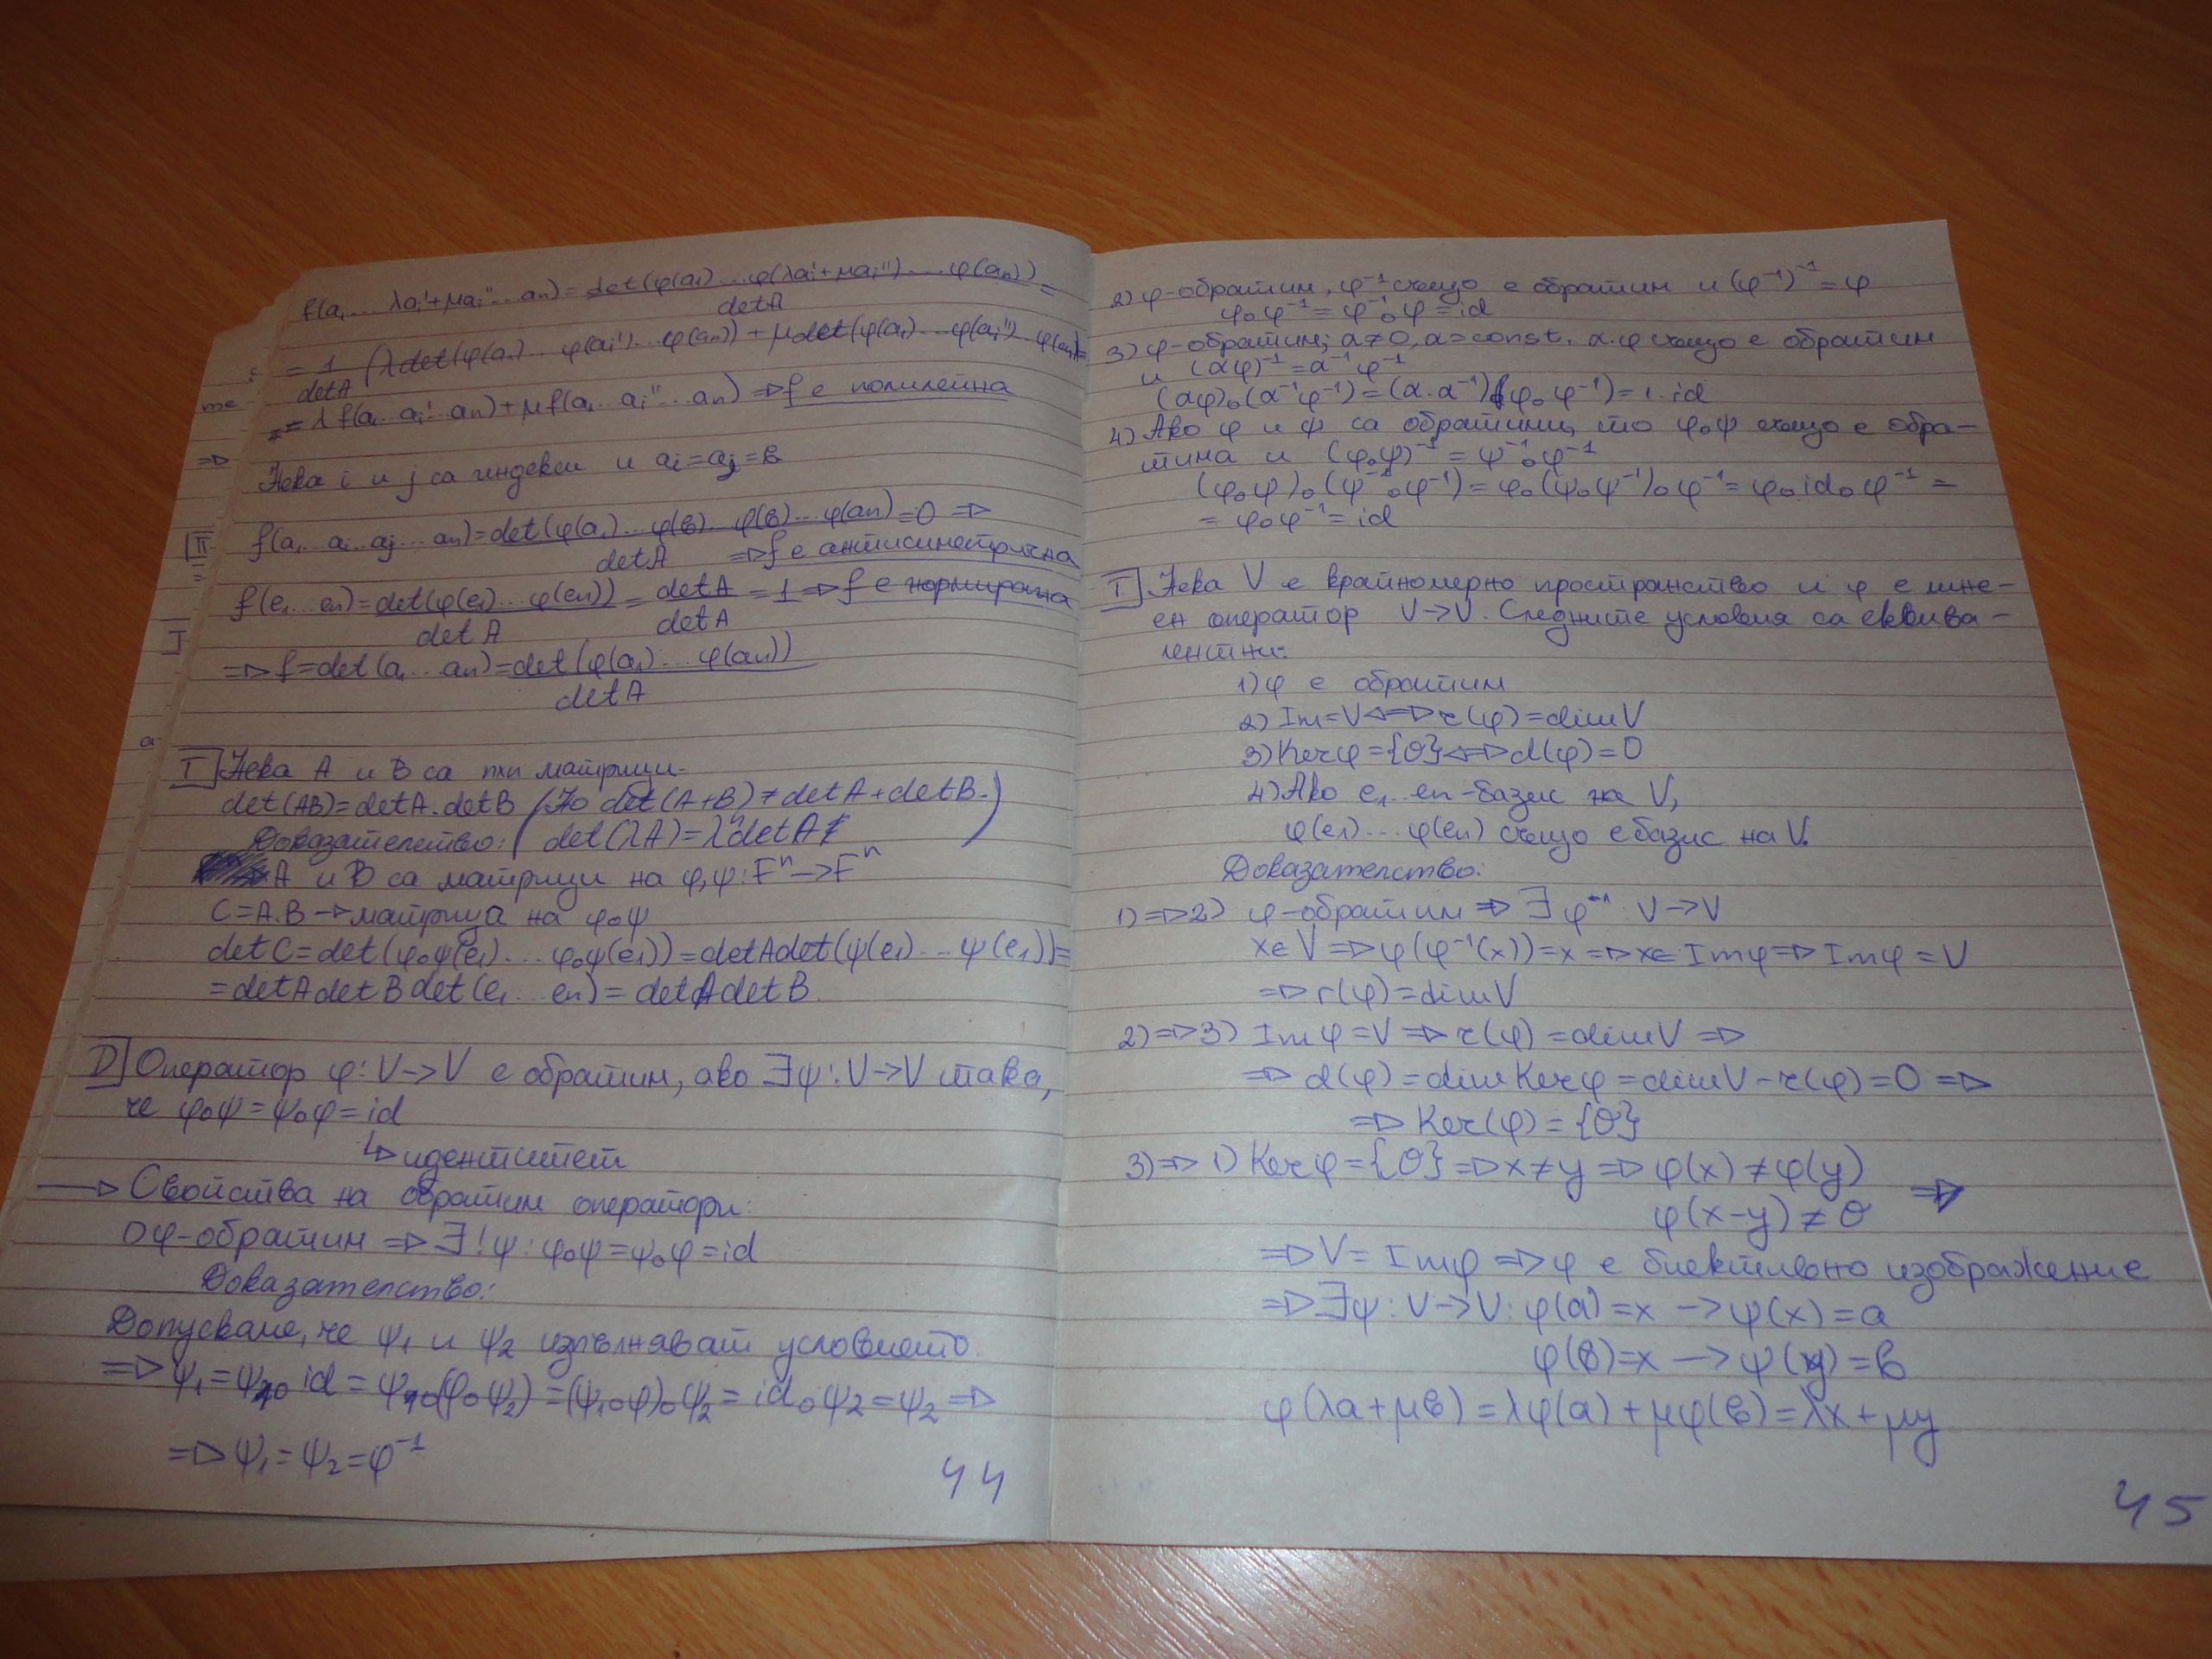 f(a₁...λaᵢ'+μaᵢ''...aₙ)=det(φ(a₁)...φ(λaᵢ'+μaᵢ'')...φ(aₙ))/detA =
= 1/detA (λdet(φ(a₁)...φ(aᵢ')...φ(aₙ))+μdet(φ(a₁)...φ(aᵢ'')...φ(aₙ))=
= λf(a₁...aᵢ'...aₙ)+μf(a₁...aᵢ''...aₙ) => f е полилейна
Нека i и j са индекси и aᵢ=aⱼ=в
f(a₁...aᵢ...aⱼ...aₙ)=det(φ(a₁)...φ(в)...φ(в)...φ(aₙ))/detA=0 =>
=> f е антисиметрична
f(e₁...eₙ)=det(φ(e₁)...φ(eₙ))/detA = detA/detA = 1 => f е нормирана
=> f=det(a₁...aₙ)=det(φ(a₁)...φ(aₙ))/detA
T Нека A и B са nxn матрици.
det(AB)=detA.detB (Но det(A+B)≠detA+detB.)
Доказателство: (det(λA)=λⁿdetA)
A и B са матрици на φ,ψ:Fⁿ->Fⁿ
C=A.B -> матрица на φ∘ψ
detC=det(φ∘ψ(e₁)...φ∘ψ(e₁))=detAdet(ψ(e₁)...ψ(e₁))=
=detAdetBdet(e₁...eₙ)=detAdetB.
D Оператор φ:V->V е обратим, ако ∃ψ:V->V така,
че φ∘ψ=ψ∘φ=id
↳ идентитет
-> Свойства на обратим оператори:
1)φ-обратим => ∃!ψ:φ∘ψ=ψ∘φ=id
Доказателство:
Допускаме, че ψ₁ и ψ₂ изпълняват условието.
=> ψ₁=ψ₁∘id=ψ₁∘(φ∘ψ₂)=(ψ₁∘φ)∘ψ₂=id∘ψ₂=ψ₂ =>
=> ψ₁=ψ₂=φ⁻¹
44
2) φ-обратим, φ⁻¹ също е обратим и (φ⁻¹)⁻¹=φ
φ∘φ⁻¹=φ⁻¹∘φ=id
3) φ-обратим; α≠0, α=const. α.φ също е обратим
и (αφ)⁻¹=α⁻¹φ⁻¹
(αφ)∘(α⁻¹φ⁻¹)=(α.α⁻¹)(φ∘φ⁻¹)=1.id
4) Ако φ и ψ са обратими, то φ∘ψ също е обра-
тима и (φ∘ψ)⁻¹=ψ⁻¹∘φ⁻¹
(φ∘ψ)∘(ψ⁻¹∘φ⁻¹)=φ∘(ψ∘ψ⁻¹)∘φ⁻¹=φ∘id∘φ⁻¹=
=φ∘φ⁻¹=id
T Нека V е крайномерно пространство и φ е лине-
ен оператор V->V. Следните условия са еквива-
лентни:
1) φ е обратим
2) Im=V<=>r(φ)=dimV
3) Kerφ={θ}<=>d(φ)=0
4) Ако e₁...eₙ-базис на V,
φ(e₁)...φ(eₙ) също е базис на V.
Доказателство:
1)=>2) φ-обратим => ∃φ⁻¹:V->V
x∈V=>φ(φ⁻¹(x))=x=>x∈Imφ=>Imφ=V
=>r(φ)=dimV
2)=>3) Imφ=V=>r(φ)=dimV=>
=>d(φ)=dimKerφ=dimV-r(φ)=0=>
=>Ker(φ)={θ}
3)=>1) Kerφ={θ}=>x≠y=>φ(x)≠φ(y)
φ(x-y)≠θ =>
=>V=Imφ=>φ е биективно изображение
=>∃ψ:V->V:φ(a)=x->ψ(x)=a
φ(в)=x->ψ(y)=в
φ(λa+μв)=λφ(a)+μφ(в)=λx+μy
45